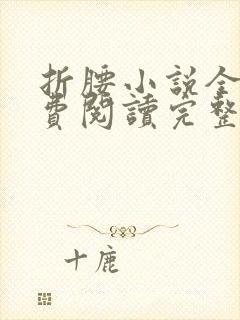 折腰小說全
費閱讀完整
十鹿